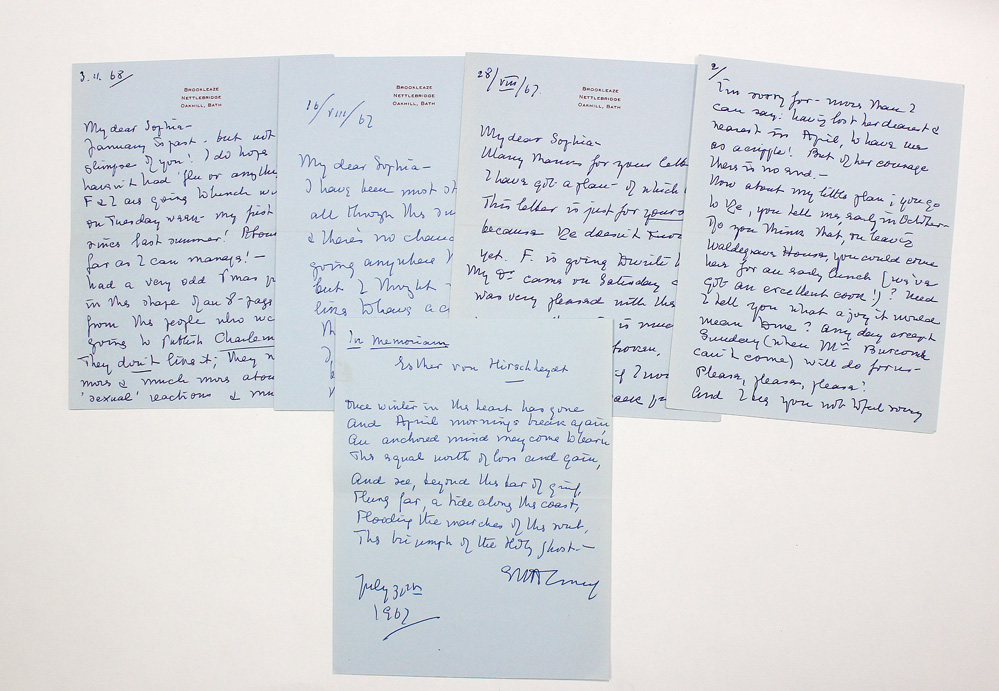 3.11.68
BROOKLEAZE
NETTLEBRIDGE
OAKHILL, BATH
My dear Sophia –
January is past – but not
glimpse of you! I do hope
haven't had 'flu or anythi
F & I are going to lunch wi
on Tuesday week – my first
since last summer! Abou
far as I can manage! –
had a very odd Xmas p
in the shape of an 8-page
from the people who we
going to publish Charlem
They don't like it; they
more & much more abou
'sexual' reactions & mu
16/VIII/67
BROOKLEAZE
NETTLEBRIDGE
OAKHILL, BATH
My dear Sophia –
I have been most
all through the su
& there's no chanc
going anywhere
but I thought
28/VIII/67
BROOKLEAZE
NETTLEBRIDGE
OAKHILL, BATH
My dear Sophia –
Many thanks for your lette
I have got a plan – of which
This letter is just for yours
because doesn't know
yet. F. is going
My Dr came on Saturday
was very pleased with the
is muc
2/
I'm sorry for – more than I
can say: having lost her dearest &
nearest in April, to have
as a cripple! But of her courage
there is no end. –
Now about my little plan; you go
to , you tell me, early in October –
Do you think that, on leaving
Waldegrave House, you could come
here for an early lunch [we've
got an excellent cook!]? Need
I tell you what a joy it would
mean to me? Any day except
Sunday (when Mrs
can't come) will do for us –
Please, please, please!
And I beg you not to feel sorry
In Memoriam
Esther von Hirschheydt
Once winter in the heart has gone
And April mornings break again
An anchored mind may come to learn
The equal worth of loss and gain,
And see, beyond the bar of grief,
Flung far, a tide along the coast,
Flooding the marches of the soul,
The triumph of the Holy Ghost –
July 30th
1967